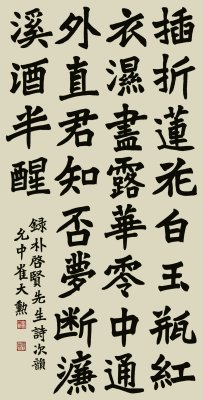 插折蓮花白玉瓶紅
衣濕盡露華零中通
外直君知否夢断濂
溪酒半醒
錄朴啓賢先生詩次韻
允中崔大勲